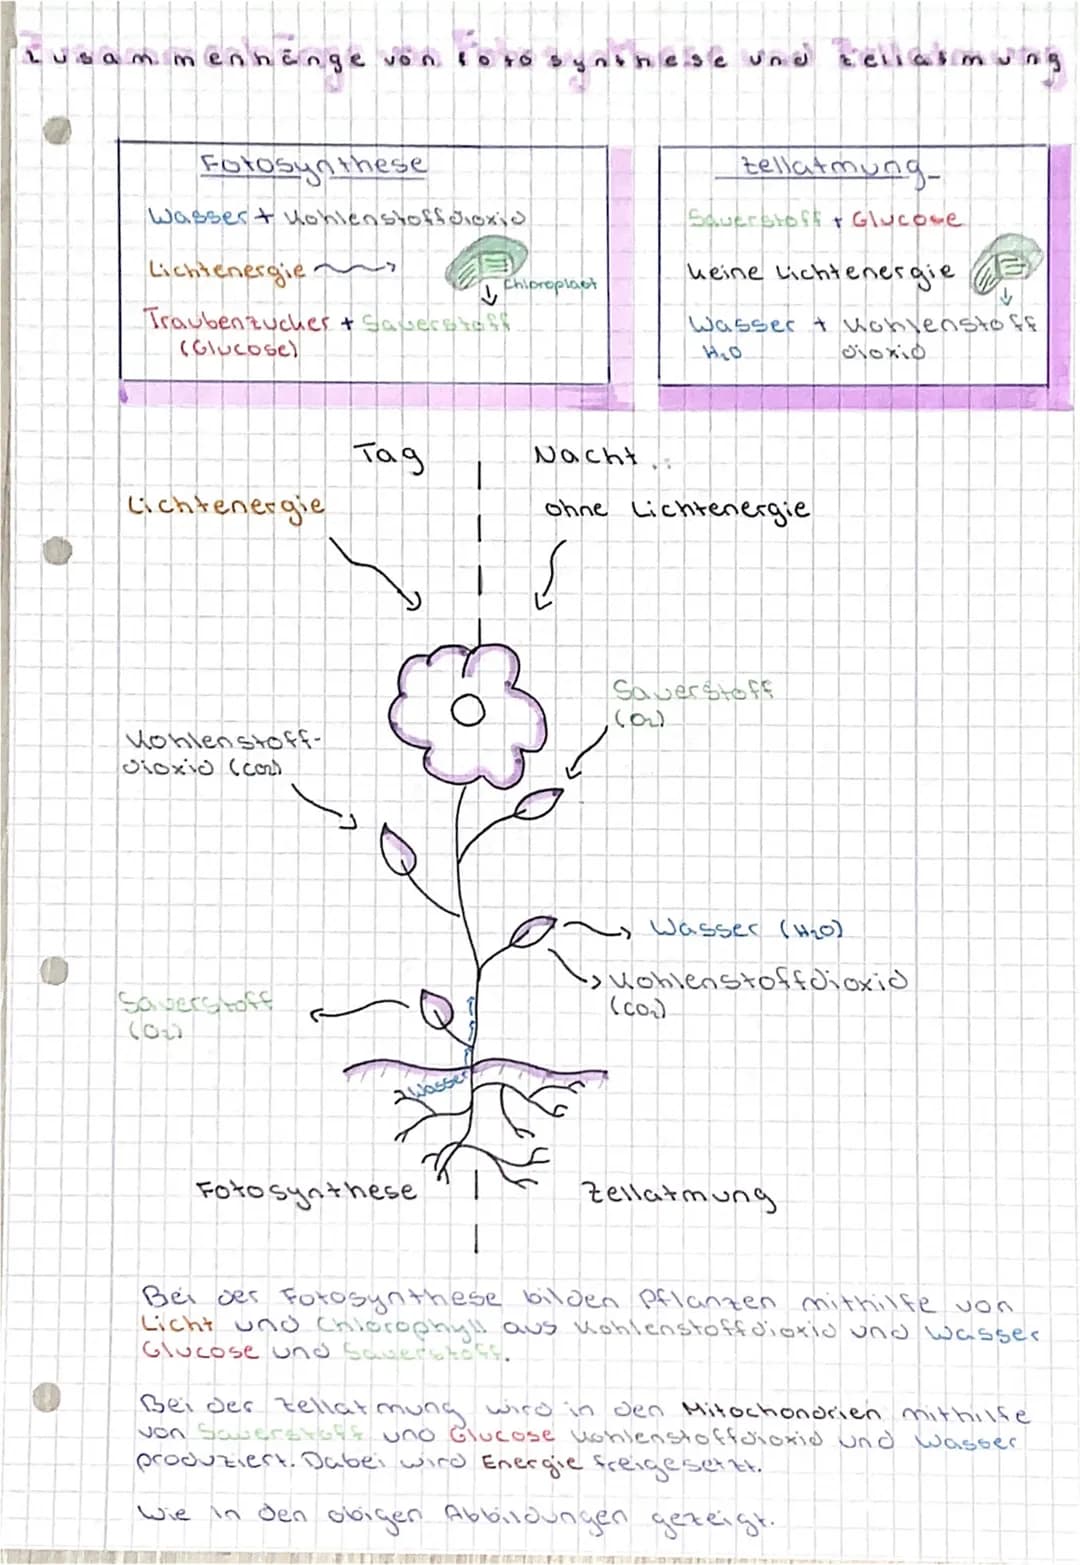 Zusammenhänge von Fotosynthese und Zellatmung
Fotosynthese
Wasser + Kohlenstoffdioxid
Lichtenergie
Chloroplast
Traubenzucker + Sauerstoff
(Glucose)
Zellatmung
Sauerstoff + Glucose
keine Lichtenergie
Wasser + Kohlenstoff
H₂O dioxid
Tag
Nacht
Lichtenergie
ohne Lichtenergie
Sauerstoff
(O₂)
Kohlenstoff-
dioxid (CO₂)
Wasser (H₂O)
Kohlenstoffdioxid
(CO₂)
Sauerstoff
(O₂)
Wasser
Fotosynthese
Zellatmung
Bei der Fotosynthese bilden Pflanzen mithilfe von
Licht und Chlorophyll aus Kohlenstoffdioxid und Wasser
Glucose und Sauerstoff.
Bei der Zellatmung wird in den Mitochondrien mithilfe
von Sauerstoff und Glucose Kohlenstoffdioxid und Wasser
produziert. Dabei wird Energie freigesetzt.
Wie in den obigen Abbildungen gezeigt.